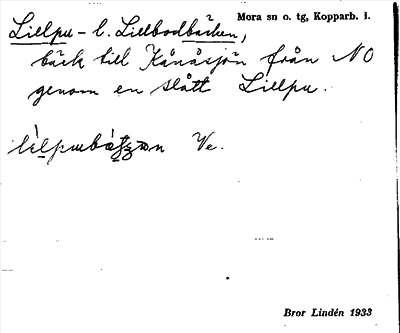 Lillpu- l. Lillbodbäcken, Mora sn o. tg, Kopparb. l.
bäck till Kånåsjön från NO
genom en slått Lillpu.
Ve.
Bror Lindén 1933